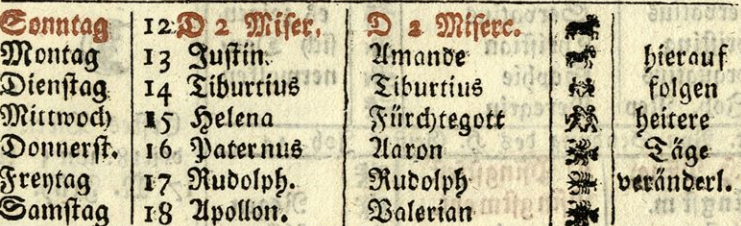 Sonntag 12 D 2 Miser. D 2 Miserc.
Montag 13 Justin. Amande hierauf
Dienstag 14 Tiburtius Tiburtius folgen
Mittwoch 15 Helena Fürchtegott heitere
Donnerst. 16 Paternus Aaron Täge
Freytag 17 Rudolph. Rudolph veränderl.
Samstag 18 Apollon. Valerian